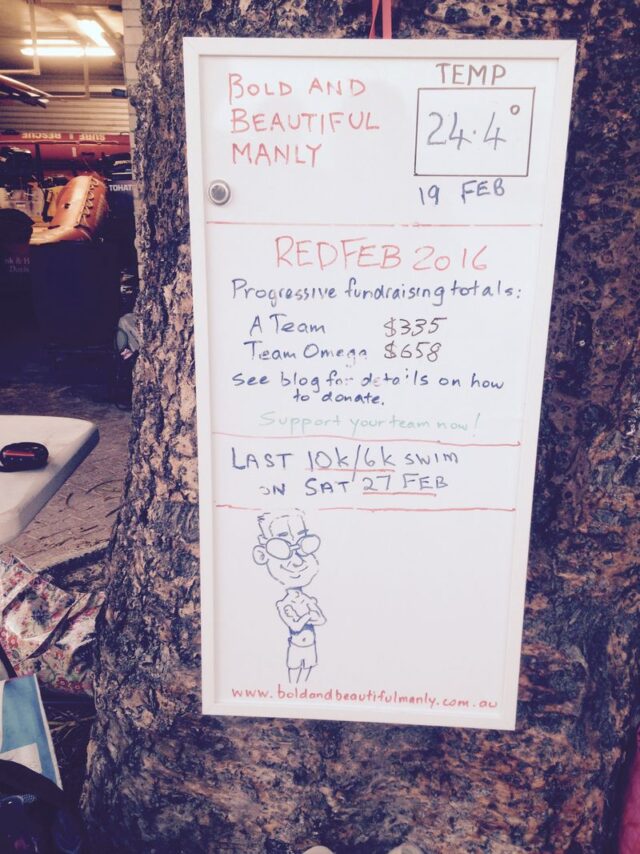 BOLD AND
BEAUTIFUL
MANLY
TEMP
24.4°
19 FEB
REDFEB 2016
Progressive fundraising totals:
A Team $335
Team Omega $658
See blog for details on how
to donate.
Support your team now!
LAST 10k/6k SWIM
ON SAT 27 FEB
www.boldandbeautifulmanly.com.au
SURF RESCUE
TOHAT